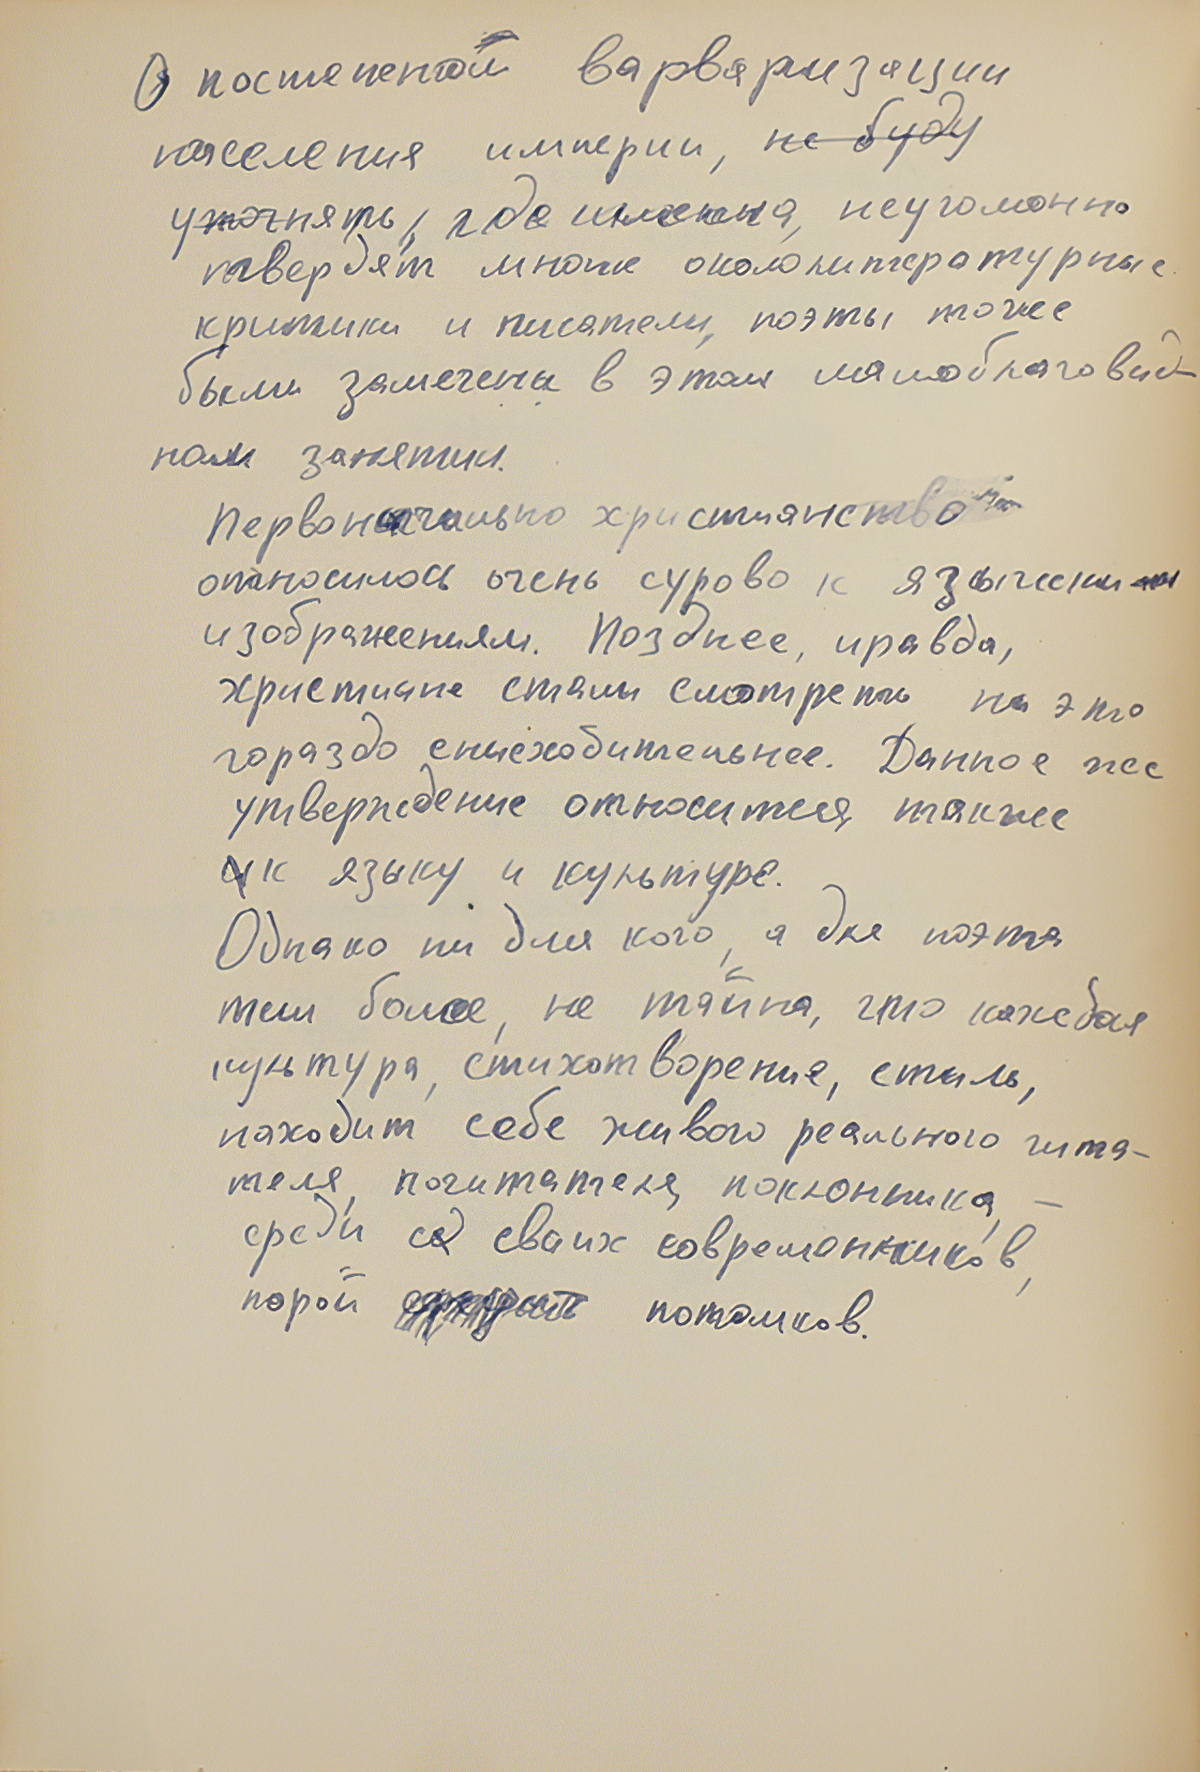 О постепенной варваризации
населения империи, не буду
уточнять, где именно, неугомонно
твердят многие окололитературные
критики и писатели, поэты тоже
были замечены в этом малоблаговид-
ном занятии.
Первоначально христианство
относилось очень сурово к языческим
изображениям. Позднее, правда,
христиане стали смотреть на это
гораздо снисходительнее. Данное же
утверждение относится также
и к языку и культуре.
Однако ни для кого, а для поэта
тем более, не тайна, что каждая
культура, стихотворение, стиль,
находит себе живого реального чита-
теля, почитателя, поклонника, —
среди своих современников,
порой потомков.